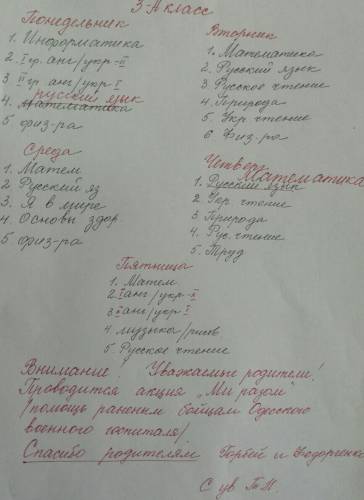 3-А класс
Понедельник
1. Информатика
2. I гр. анг/укр - II
3 II гр анг/укр I
русский язык
4. Математика
5 физ-ра
Вторник
1. Математика
2. Русский язык
3. Русское чтение
4. Природа
5. Укр чтение
6 Физ.ра
Среда
1. Матем
2 Русский яз
3. Я в мире
4. Основы здор.
5 физ-ра
Четверг
Математика
1. Русский язык
2. Укр чтение
3 Природа
4. Рус. чтение
5. Труд
Пятница
1. Матем
2 I анг/укр - II
3 II анг/укр I
4. музыка/рисов
5. Русское чтение
Внимание! Уважаемые родители!
Проводится акция „Ми разом"
/помощь раненым бойцам Одесского
военного госпиталя/
Спасибо родителям Горбей и Бодоренко
С ув Т.М.